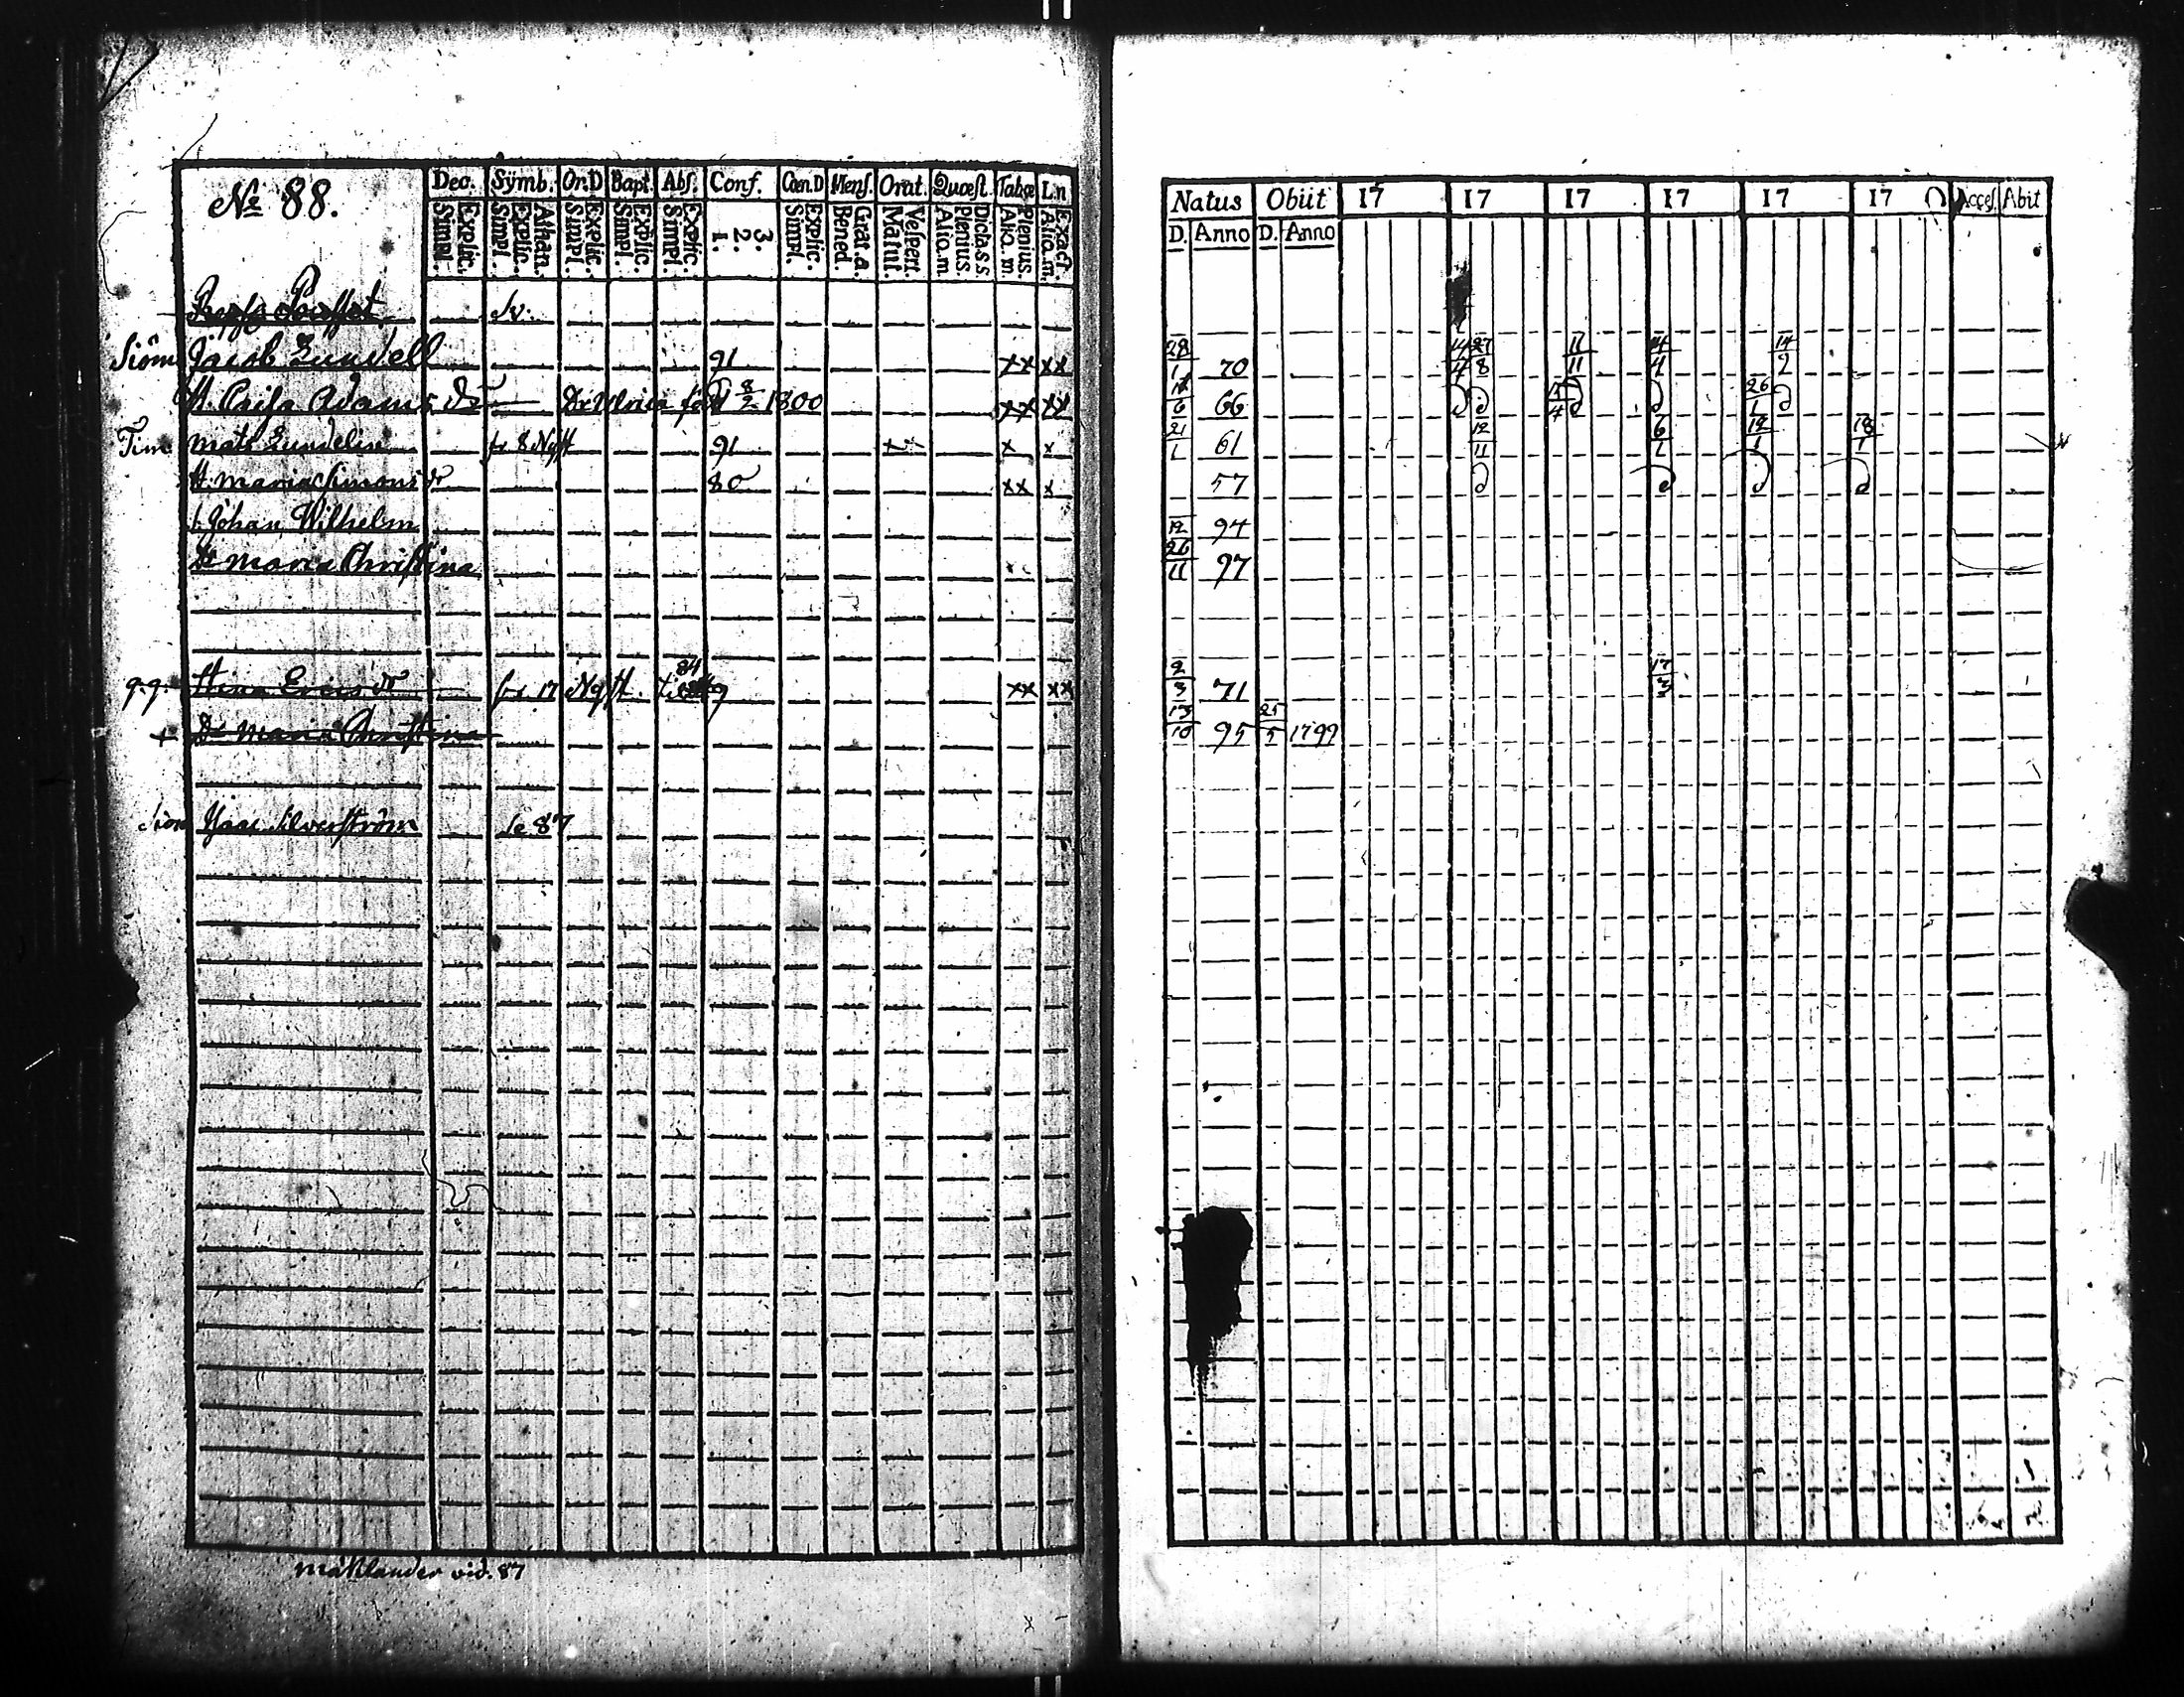 No 88.
Dec. Symb. Or.D Bapt. Abs. Conf. Cœn.D Mens. Orat. Quœst. Tabœ L.n
Explic. Simpl. Athan. Explic. Simpl. Explic. Simpl. Explic. Simpl. Explic. Simpl. 3. 2. 1. Explic. Simpl. Grat.a. Bened. Vespert. Matut. Dicta s.s. Plenius. Alio.m. Plenius. Alio.m. Exact. Alio.m.
Siöm Jacob Lundell 91 xx xx
H. Adams dr Dr Ulrica föd 8/2 1800 xx xx
Tim Mats Lundelin fr 8 Ngft 91 x x x
H. Maria Simonsdr 80 xx x
s. Johan Wilhelm
Dr Maria Christina
q.q. Stina Erics dr 17 Ngft 84 xx xx
+ Dr Maria Christina
Silverström Se 87
vid. 87
Natus Obiit 17 17 17 17 17 17 Acces. Abiit
D. Anno D. Anno
28/1 70 14/4 27/8 11/11 14/4 14/2
66 26/1
21/1 61 12/11 6/1 12/1 18/1
57
12 94
26/11 97
2/3 71 17/3
13/10 95 25/5 1799